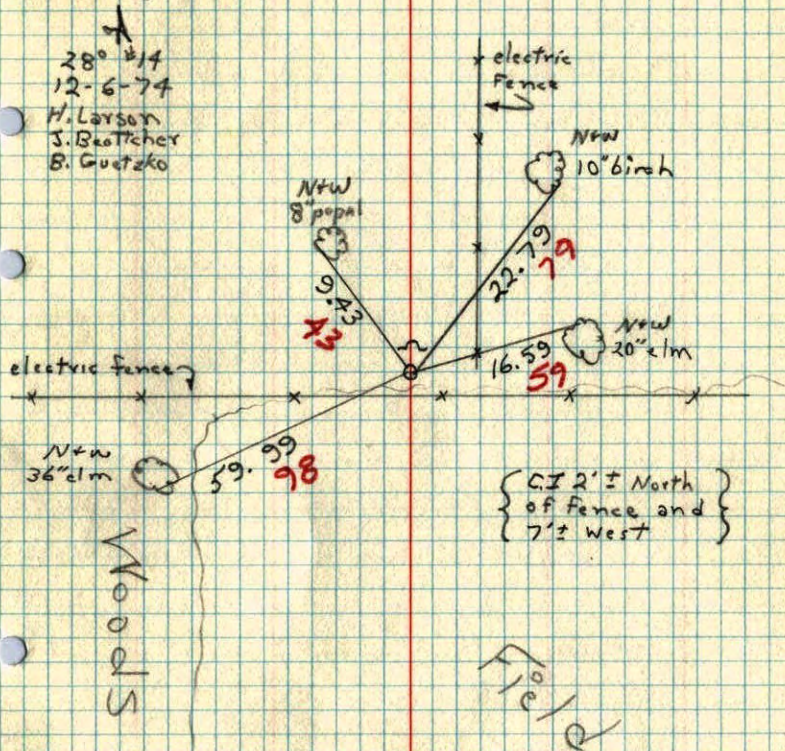 28° #14
12-6-74
H. Larson
J. Beottcher
B. Guetzko
electric
Fence
N+W
10" birch
N+W
8" popal
22.79
79
9.43
43
N+W
20" elm
16.59
59
electric fence
N+W
36" elm
59.99
98
{ C.I 2' ± North
of Fence and
7' ± West }
Woods
Field